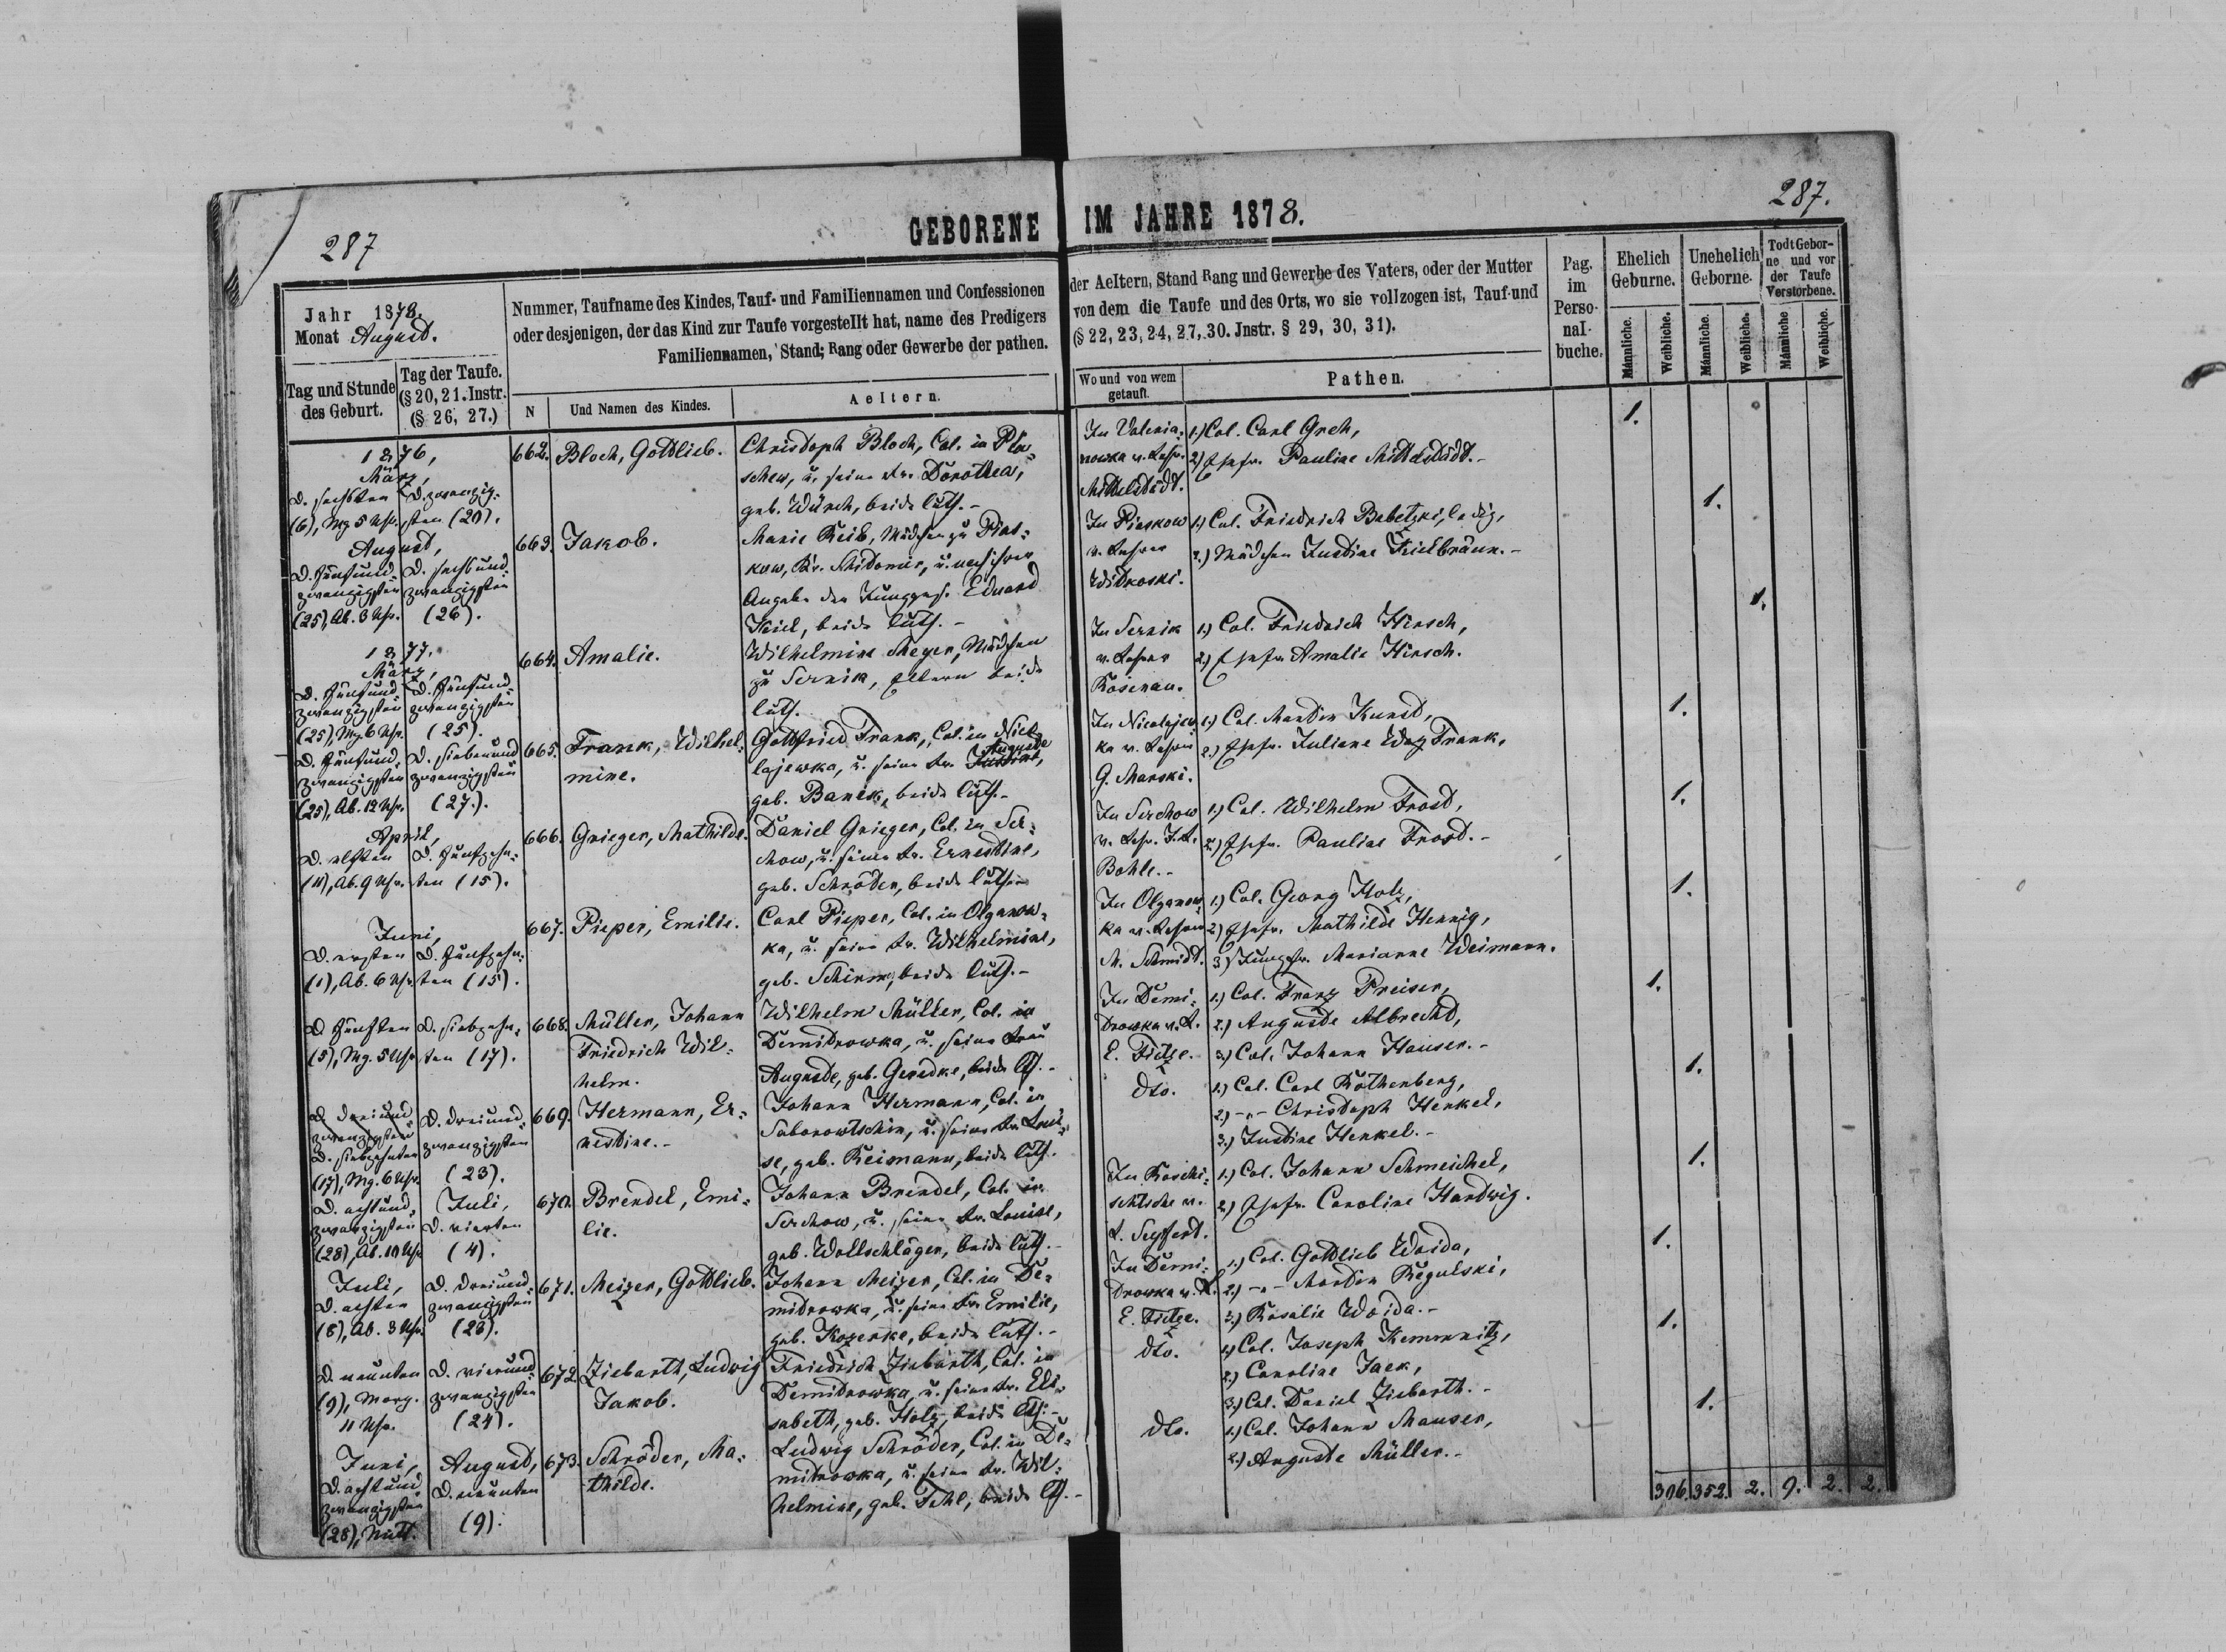 287
GEBORENE IM JAHRE 1878.
287.
Jahr 1878.
Monat August.
Tag und Stunde
des Geburt.
Tag der Taufe.
(§ 20, 21. Instr.
(§ 26, 27.)
Nummer, Taufname des Kindes, Tauf- und Familiennamen und Confessionen
oder desjenigen, der das Kind zur Taufe vorgestellt hat, name des Predigers
Familiennamen, Stand; Rang oder Gewerbe der pathen.
N
Und Namen des Kindes.
Aeltern.
der Aeltern, Stand Rang und Gewerbe des Vaters, oder der Mutter
von dem die Taufe und des Orts, wo sie vollzogen ist, Tauf-und
(§ 22, 23, 24, 27, 30. Jnstr. § 29, 30, 31).
Wo und von wem
getauft.
Pathen.
Pag.
im
Perso-
nal-
buche.
Ehelich
Geburne.
Unehelich
Geborne.
Todt Gebor-
ne und vor
der Taufe
Verstorbene.
Männliche.
Weibliche.
Männliche.
Weibliche.
Männliche
Weibliche.
1876,
März,
D. sechsten
(6), Mg 5 Uhr.
D. zwanzig-
sten (20).
662.
Bloch, Gottlieb.
Christoph Bloch, Col. in Pla-
schew, u. seine Fr. Dorothea,
geb. Würch, beide luth. -
In Valeria-
nowka v. Lehr.
Mittelstädt.
1.) Col. Carl Greh,
2.) Ehefr. Pauline Mittelstädt. -
1.
August,
D. fünfund-
zwanzigsten
(25), Ab. 3 Uhr.
D. sechsund-
zwanzigsten
(26).
663.
Jakob.
Marie Reib, Mädchen zu Pias-
kow, Kr. Shitomir, u. nach ihrer
Angabe der Jungges. Eduard
Keil, beide luth. -
In Piaskow
v. Lehrer
Witkoski.
1.) Col. Friedrich Babetzki, ledig,
2.) Mädchen Justine Frielbraun. -
1.
1877.
März,
D. fünfund-
zwanzigsten
(25), Mg. 6 Uhr.
D. fünfund-
zwanzigsten
(25).
664.
Amalie.
Wilhelmine Meyer, Mädchen
zu Sernik, Eltern beide
luth.
In Sernik
v. Lehrer
Rosenau.
1.) Col. Friedrich Hirsch,
2.) Ehefr. Amalie Hirsch.
1.
D. fünfund-
zwanzigsten
(25), Ab. 12 Uhr.
D. siebenund-
zwanzigsten
(27.).
665.
Frank, Wilhel-
mine.
Gottfried Frank, Col. in Nico-
lajewka, u. seine Fr. Justine, Auguste
geb. Banik, beide luth. -
In Nicolajew-
ka v. Lehrer
G. Manski.
1.) Col. Martin Kunst,
2.) Ehefr. Juliane Frank,
1.
April,
D. elften
(11), Ab. 9 Uhr.
D. fünfzehn-
ten (15).
666.
Grieger, Mathilde.
Daniel Grieger, Col. in Ser-
chow, u. seine Fr. Ernestine,
geb. Schröder, beide luth. -
In Serchow
v. Lehr. J. L.
Bohle. -
1.) Col. Wilhelm Frost,
2.) Ehefr. Pauline Frost. -
1.
Juni,
D. ersten
(1), Ab. 6 Uhr
D. fünfzehn-
ten (15).
667.
Pieper, Emilie.
Carl Pieper, Col. in Olganow-
ka, u. seine Fr. Wilhelmine,
geb. Schirm, beide luth. -
In Olganow-
ka v. Lehrer
M. Schmidt.
1.) Col. Georg Holz,
2.) Ehefr. Mathilde Hennig,
3.) Jungfr. Marianne Weimann.
1.
D. fünften
(5), Mg. 5 Uhr
D. siebzehn-
ten (17).
668.
Müller, Johann
Friedrich Wil-
helm.
Wilhelm Müller, Col. in
Demidrowka, u. seine Frau
Auguste, geb. Geredke, beide lth. -
In Demi-
drowka v. L.
E. Fietze.
1.) Col. Franz Preiser,
2.) Auguste Albrecht,
3.) Col. Johann Hauser. -
1.
D. dreiund-
zwanzigsten
D. siebzehnten
(17), Mg. 6 Uhr.
D. dreiund-
zwanzigsten
(23).
669.
Hermann, Er-
nestine. -
Johann Hermann, Col. in
Saborowtschin, u. seine Fr. Loui-
se, geb. Reimann, beide luth.
dto.
1.) Col. Carl Rothenberg,
2.) -„- Christoph Henkel,
3.) Justine Henkel. -
1.
D. achtund-
zwanzigsten
(28), Ab. 10 Uhr
Juli,
D. vierten
(4).
670.
Brendel, Emi-
lie.
Johann Brendel, Col. in
Serchow, u. seine Fr. Louise,
geb. Wollschläger, beide luth. -
In Roschi-
schtsche v.
L. Seyfert.
1.) Col. Johann Schmeichel,
2.) Ehefr. Caroline Hartwig.
1.
Juli,
D. achten
(8), Ab. 3 Uhr.
D. dreiund-
zwanzigsten
(23).
671.
Meizer, Gottlieb.
Johann Meizer, Col. in De-
midrowka, u. seine Fr. Emilie,
geb. Kozerke, beide luth. -
In Demi-
drowka v. L.
E. Fietze.
1.) Col. Gottlieb Woida,
2.) -„- Martin Regulski,
3.) Rosalie Woida. -
1.
D. neunten
(9), Morg.
11 Uhr.
D. vierund-
zwanzigsten
(24).
672.
Ziebarth, Ludwig
Jakob.
Friedrich Ziebarth, Col. in
Demidrowka, u. seine Fr. Eli-
sabeth, geb. Holz, beide lth. -
dto.
1.) Col. Joseph Kemmnitz,
2.) Caroline Jaek,
3.) Col. Daniel Ziebarth. -
1.
Juni,
D. achtund-
zwanzigsten
(28), Mitt.
August,
D. neunten
(9).
673.
Schröder, Ma-
thilde.
Ludwig Schröder, Col. in De-
midrowka, u. seine Fr. Wil-
helmine, geb. Fehl, beide lth. -
dto.
1.) Col. Johann Mauser,
2.) Auguste Müller. -
1.
306. 352. 2. 9. 2. 2.